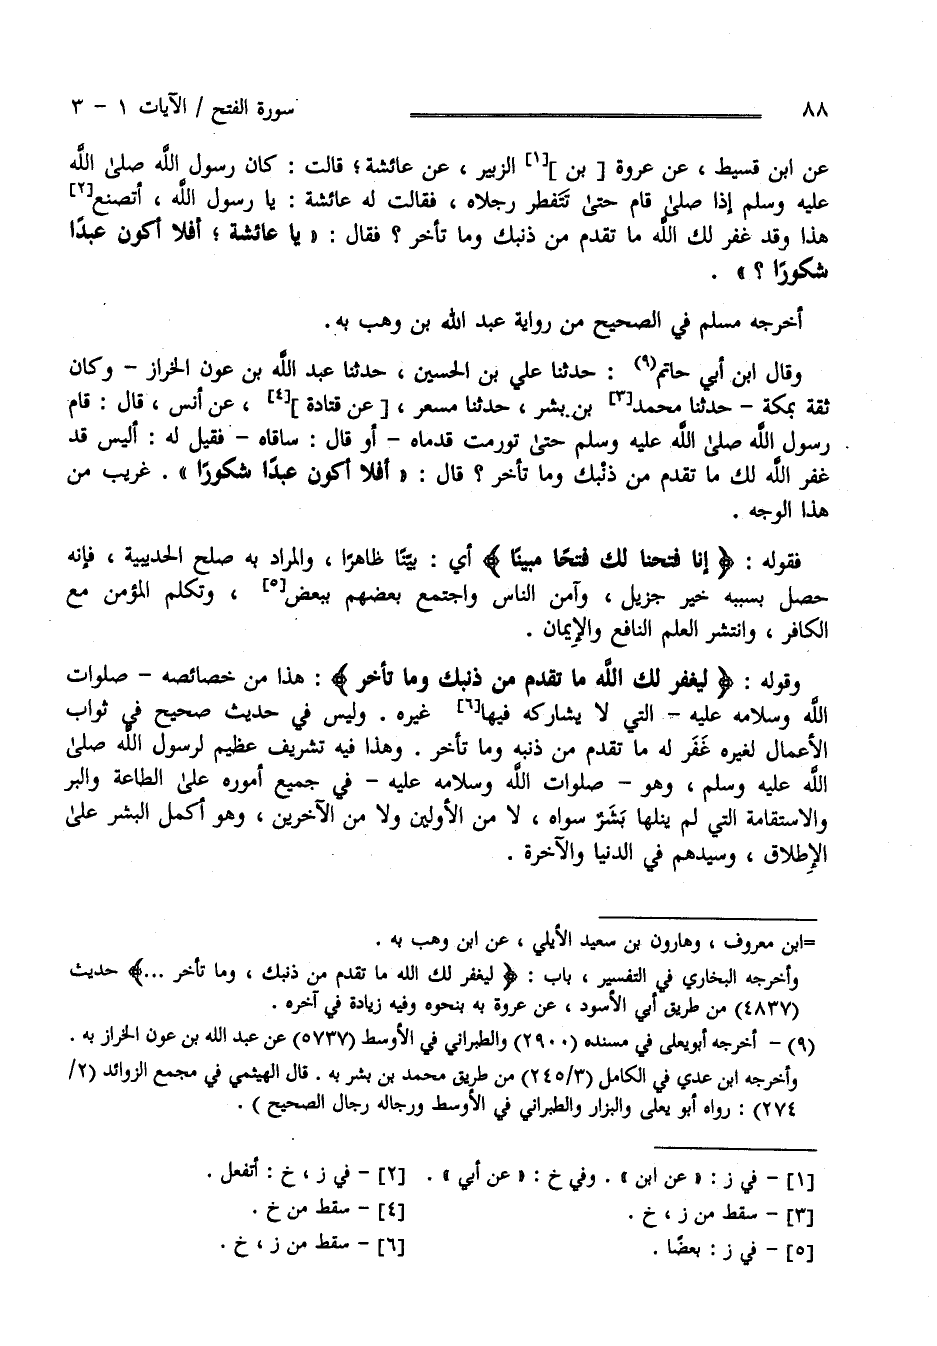 ٨٨ سورة الفتح / الآيات ١ - ٣
عن ابن قسيط ، عن عروة [ بن ][١] الزبير ، عن عائشة؛ قالت : كان رسول اللَّه صلىٰ اللَّه
عليه وسلم إذا صلىٰ قام حتىٰ تَتَفطر رجلاه ، فقالت له عائشة : يا رسول اللَّه ، أتصنع[٢]
هذا وقد غفر لك اللَّه ما تقدم من ذنبك وما تأخر ؟ فقال : « يا عائشة ؛ أفلا أكون عبدًا
شكورًا ؟ » .
أخرجه مسلم في الصحيح من رواية عبد الله بن وهب به.
وقال ابن أبي حاتم(٩) : حدثنا علي بن الحسين ، حدثنا عبد اللَّه بن عون الخراز - وكان
ثقة بمكة - حدثنا محمد[٣] بن بشر ، حدثنا مسعر ، [ عن قتادة ][٤] ، عن أنس ، قال : قام
رسول اللَّه صلىٰ اللَّه عليه وسلم حتىٰ تورمت قدماه - أو قال : ساقاه - فقيل له : أليس قد
غفر اللَّه لك ما تقدم من ذنْبك وما تأخر ؟ قال : « أفلا أكون عبدًا شكورًا » . غريب من
هذا الوجه .
فقوله : ﴿ إنا فتحنا لك فتحًا مبينًا ﴾ أي : بيّنًا ظاهرًا ، والمراد به صلح الحديبية ، فإنه
حصل بسببه خير جزيل ، وآمن الناس واجتمع بعضهم ببعض[٥] ، وتكلم المؤمن مع
الكافر ، وانتشر العلم النافع والإيمان .
وقوله : ﴿ ليغفر لك اللَّه ما تقدم من ذنبك وما تأخر ﴾ : هذا من خصائصه - صلوات
اللَّه وسلامه عليه - التي لا يشاركه فيها[٦] غيره . وليس في حديث صحيح في ثواب
الأعمال لغيره غَفَر له ما تقدم من ذنبه وما تأخر . وهذا فيه تشريف عظيم لرسول اللَّه صلىٰ
اللَّه عليه وسلم ، وهو - صلوات اللَّه وسلامه عليه - في جميع أموره علىٰ الطاعة والبر
والاستقامة التي لم ينلها بَشَرٌ سواه ، لا من الأولين ولا من الآخرين ، وهو أكمل البشر علىٰ
الإطلاق ، وسيدهم في الدنيا والآخرة .
=ابن معروف ، وهارون بن سعيد الأيلي ، عن ابن وهب به .
وأخرجه البخاري في التفسير ، باب : ﴿ ليغفر لك الله ما تقدم من ذنبك ، وما تأخر ...﴾ حديث
(٤٨٣٧) من طريق أبي الأسود ، عن عروة به بنحوه وفيه زيادة في آخره .
(٩) - أخرجه أبويعلى في مسنده (٢٩٠٠) والطبراني في الأوسط (٥٧٣٧) عن عبد الله بن عون الخراز به .
وأخرجه ابن عدي في الكامل (٢٤٥/٣) من طريق محمد بن بشر به . قال الهيثمي في مجمع الزوائد (٢/
٢٧٤) : رواه أبو يعلى والبزار والطبراني في الأوسط ورجاله رجال الصحيح ) .
[١] - في ز : « عن ابن » . وفي خ : « عن أبي » . [٢] - في ز ، خ : أتفعل .
[٣] - سقط من ز ، خ . [٤] - سقط من خ .
[٥] - في ز : بعضًا . [٦] - سقط من ز ، خ .